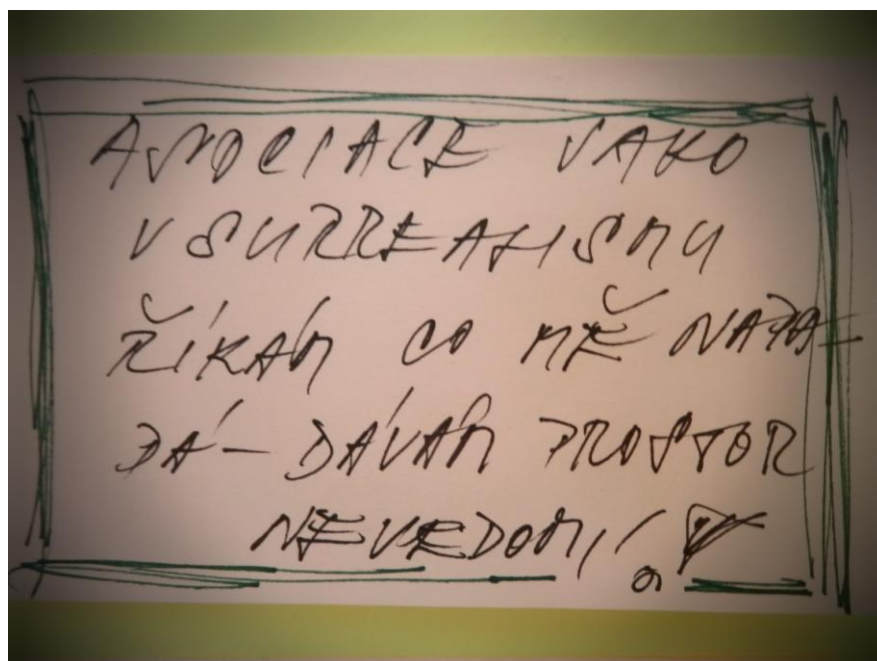 ASOCIACE JAKO
V SURREALISMU
ŘÍKÁM CO MĚ NAPA-
DÁ - DÁVÁM PROSTOR
NEVEDOMÍ!